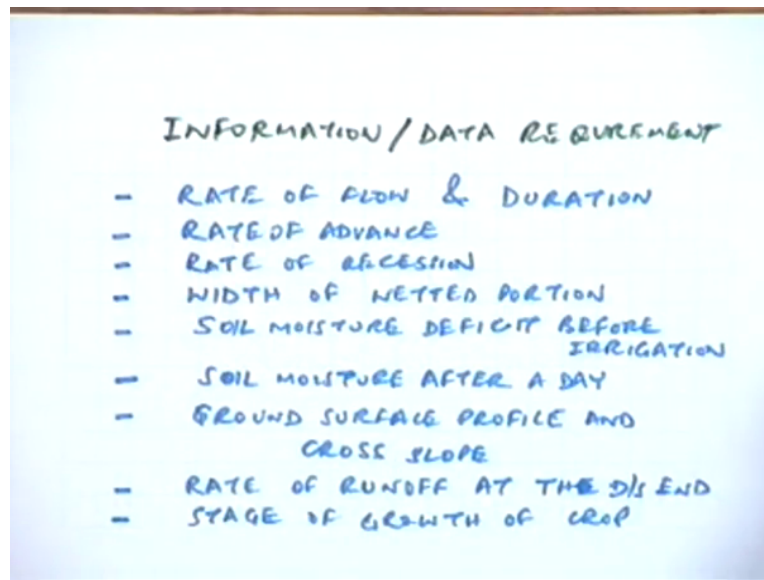 INFORMATION/DATA REQUREMENT
- RATE OF FLOW & DURATION
- RATE OF ADVANCE
- RATE OF RECESSION
- WIDTH OF WETTED PORTION
- SOIL MOISTURE DEFICIT BEFORE
IRRIGATION
- SOIL MOISTURE AFTER A DAY
- GROUND SURFACE PROFILE AND
CROSS SLOPE
- RATE OF RUNOFF AT THE D/S END
- STAGE OF GROWTH OF CROP